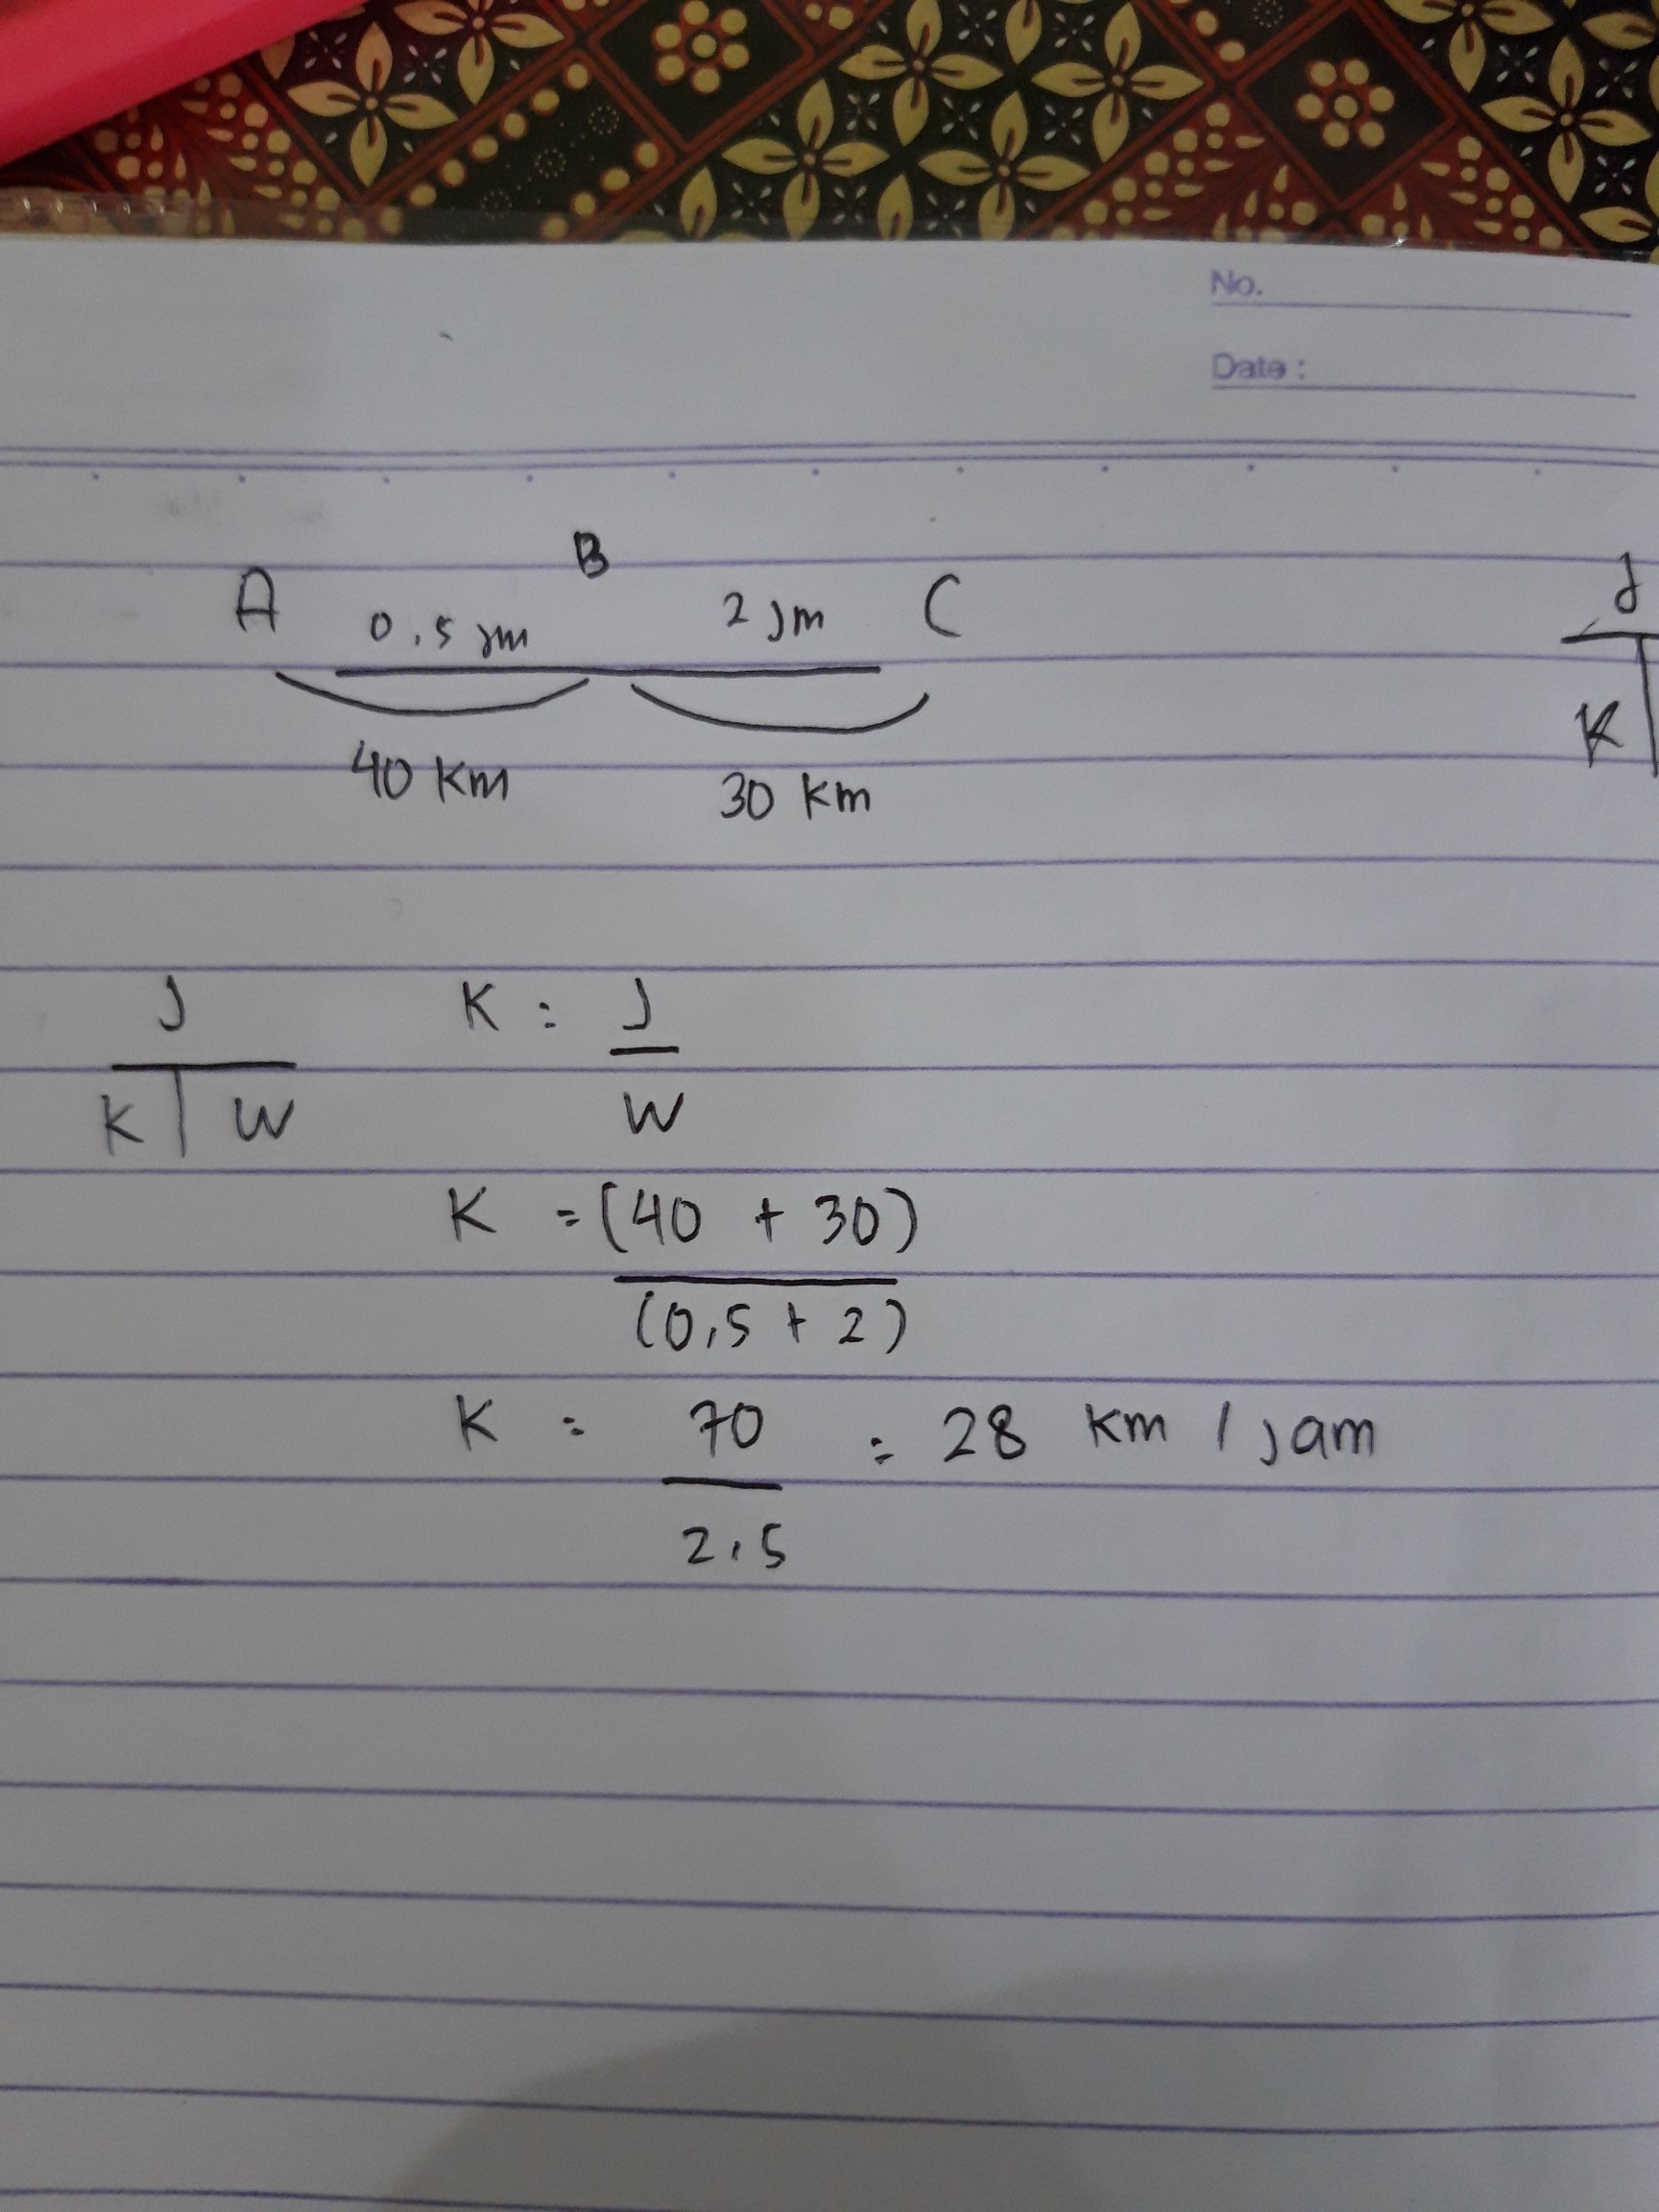 No.
Date :
A 0.5 jm B 2 jm C
40 km 30 km
J
K
J K = J
K W W
K = (40 + 30)
(0,5 + 2)
K = 70 = 28 km / jam
2,5